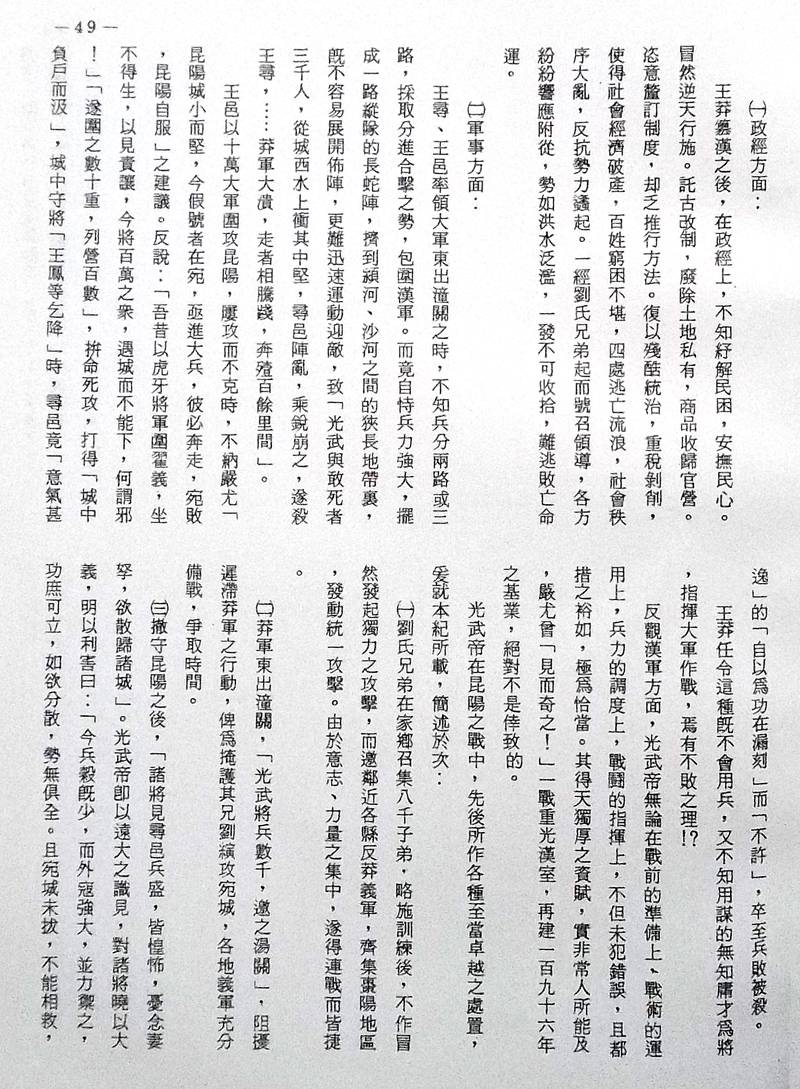 —49—
㈠政經方面：
王莽纂漢之後，在政經上，不知紓解民困，安撫民心。
冒然逆天行施。託古改制，廢除土地私有，商品收歸官營。
恣意釐訂制度，却乏推行方法。復以殘酷統治，重稅剝削，
使得社會經濟破產，百姓窮困不堪，四處逃亡流浪，社會秩
序大亂，反抗勢力蠭起。一經劉氏兄弟起而號召領導，各方
紛紛響應附從，勢如洪水泛濫，一發不可收拾，難逃敗亡命
運。
㈡軍事方面：
王尋、王邑率領大軍東出潼關之時，不知兵分兩路或三
路，採取分進合擊之勢，包圍漢軍。而竟自恃兵力強大，擺
成一路縱隊的長蛇陣，擠到潁河、沙河之間的狹長地帶裏，
旣不容易展開佈陣，更難迅速運動迎敵，致「光武與敢死者
三千人，從城西水上衝其中堅，尋邑陣亂，乘銳崩之，遂殺
王尋，……莽軍大潰，走者相騰踐，奔殪百餘里間」。
王邑以十萬大軍圍攻昆陽，屢攻而不克時，不納嚴尤「
昆陽城小而堅，今假號者在宛，亟進大兵，彼必奔走，宛敗
，昆陽自服」之建議。反說：「吾昔以虎牙將軍圍翟義，坐
不得生，以見責讓，今將百萬之衆，遇城而不能下，何謂邪
！」「遂圍之數十重，列營百數」，拚命死攻，打得「城中
負戶而汲」，城中守將「王鳳等乞降」時，尋邑竟「意氣甚
逸」的「自以爲功在漏刻」而「不許」，卒至兵敗被殺。
王莽任令這種旣不會用兵，又不知用謀的無知庸才爲將
，指揮大軍作戰，焉有不敗之理!?
反觀漢軍方面，光武帝無論在戰前的準備上、戰術的運
用上，兵力的調度上，戰鬪的指揮上，不但未犯錯誤，且都
措之裕如，極爲恰當。其得天獨厚之資賦，實非常人所能及
，嚴尤曾「見而奇之！」一戰重光漢室，再建一百九十六年
之基業，絕對不是倖致的。
光武帝在昆陽之戰中，先後所作各種至當卓越之處置，
爰就本紀所載，簡述於次：
㈠劉氏兄弟在家鄉召集八千子弟，略施訓練後，不作冒
然發起獨力之攻擊，而邀鄰近各縣反莽義軍，齊集棗陽地區
，發動統一攻擊。由於意志、力量之集中，遂得連戰而皆捷
。
㈡莽軍東出潼關，「光武將兵數千，邀之湯關」，阻擾
遲滯莽軍之行動，俾爲掩護其兄劉縯攻宛城，各地義軍充分
備戰，爭取時間。
㈢撤守昆陽之後，「諸將見尋邑兵盛，皆惶怖，憂念妻
孥，欲散歸諸城」。光武帝卽以遠大之識見，對諸將曉以大
義，明以利害曰：「今兵穀旣少，而外寇強大，並力禦之，
功庶可立，如欲分散，勢無俱全。且宛城未拔，不能相救，